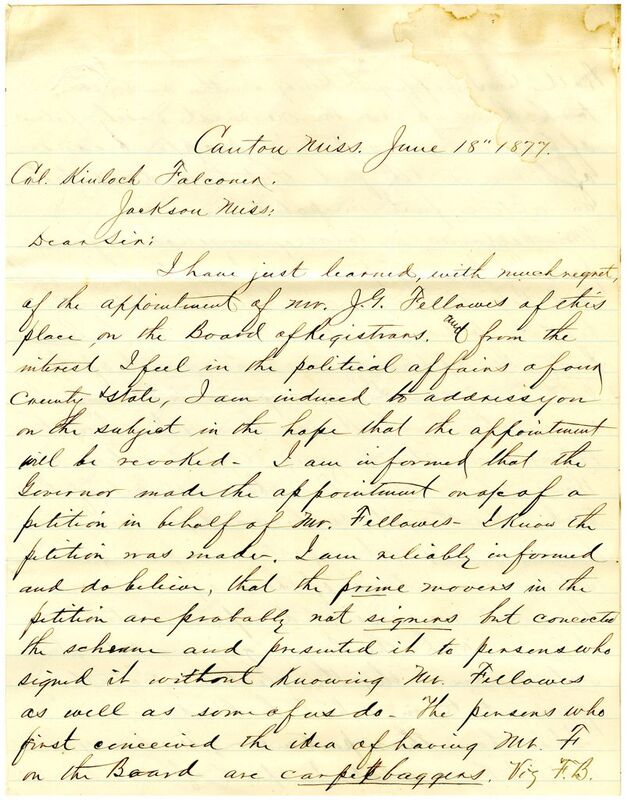 Canton Miss. June 18" 1877.
Col. Kinloch Falconer.
Jackson Miss;
Dear Sir;
I have just learned, with much regret,
of the appointment of Mr. J.G. Fellowes of this
place, on the Board of Registrars. and from the
interest I feel in the political affairs of our
County & State, I am induced to address you
on the subject in the hope that the appointment
will be revoked - I am informed that the
Governor made the appointment on a/c of a
petition in behalf of Mr. Fellowes - I know the
petition was made. I am reliably informed
and do believe, that the prime movers in the
petition are probably not signers but concocted
the scheme and presented it to persons who
signed it without knowing Mr. Fellowes
as well as some of us do - The persons who
first conceived the idea of having Mr. F
on the Board are carpetbaggers. Viz F.B.